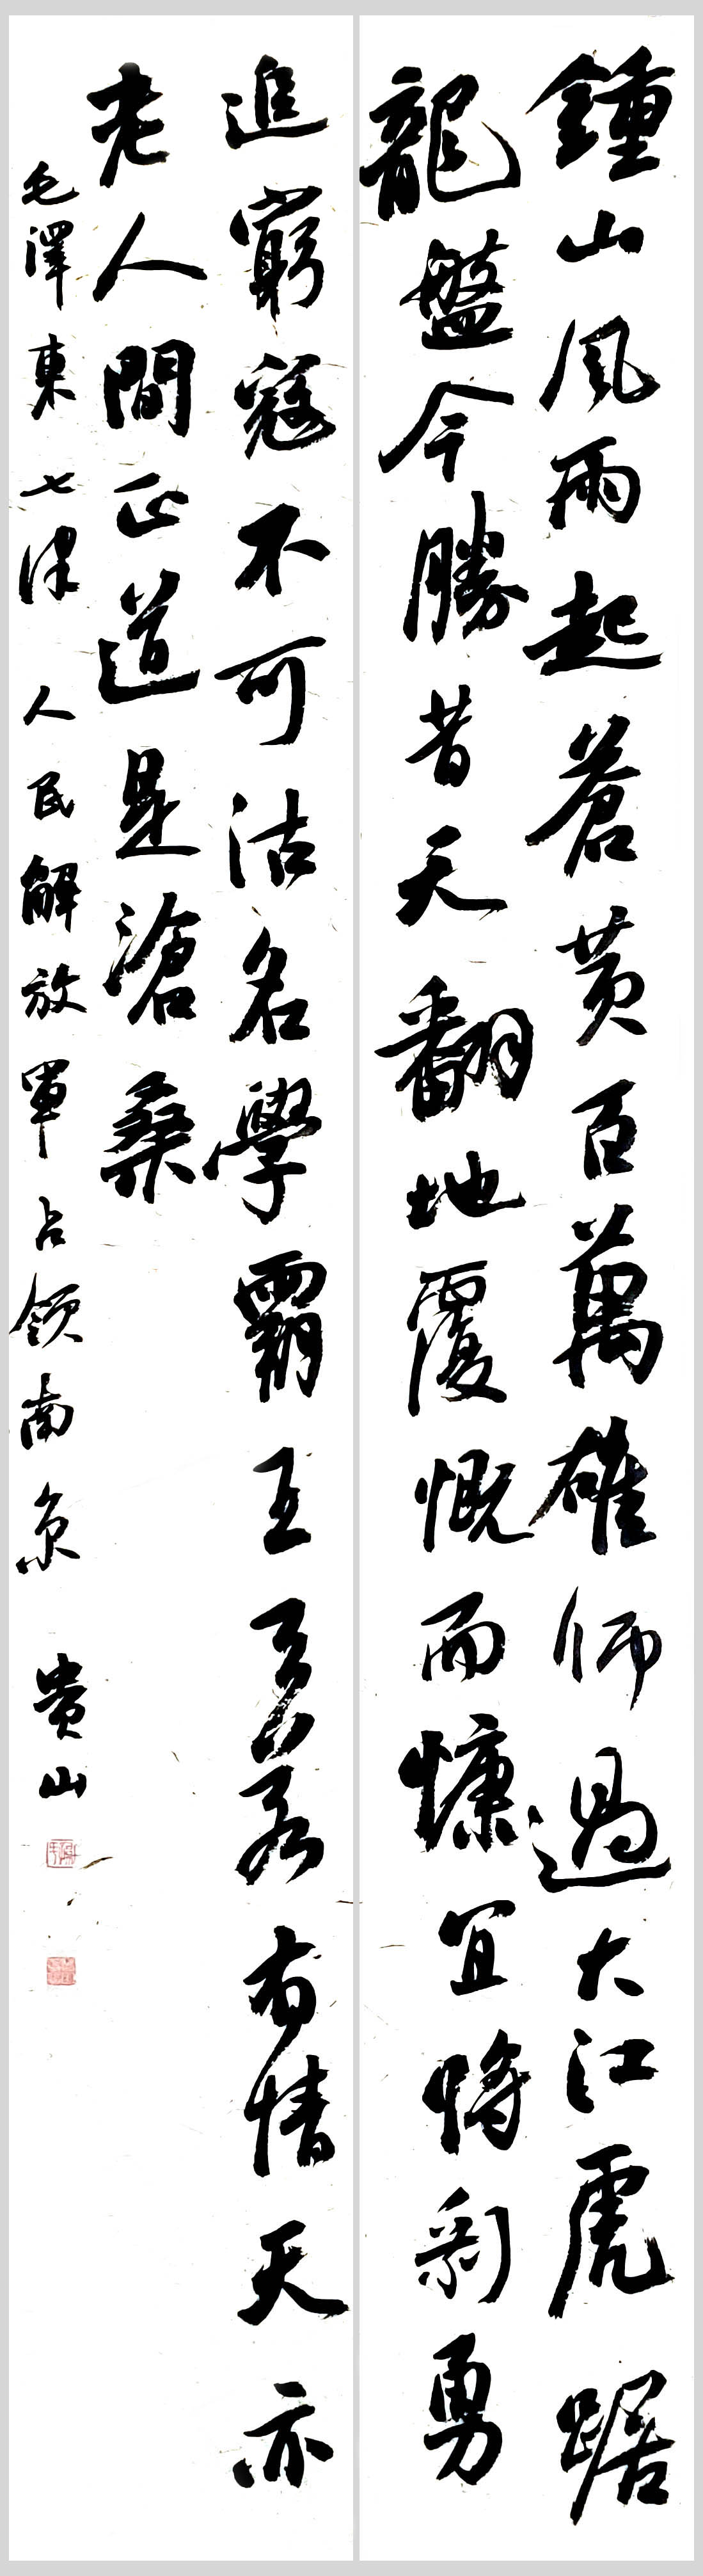 鍾山風雨起蒼黄百萬雄師過大江虎踞
龍盤今勝昔天翻地覆慨而慷宜將剩勇
追窮寇不可沽名學霸王天若有情天亦
老人間正道是滄桑
毛澤東七律 人民解放軍占領南京 貴山